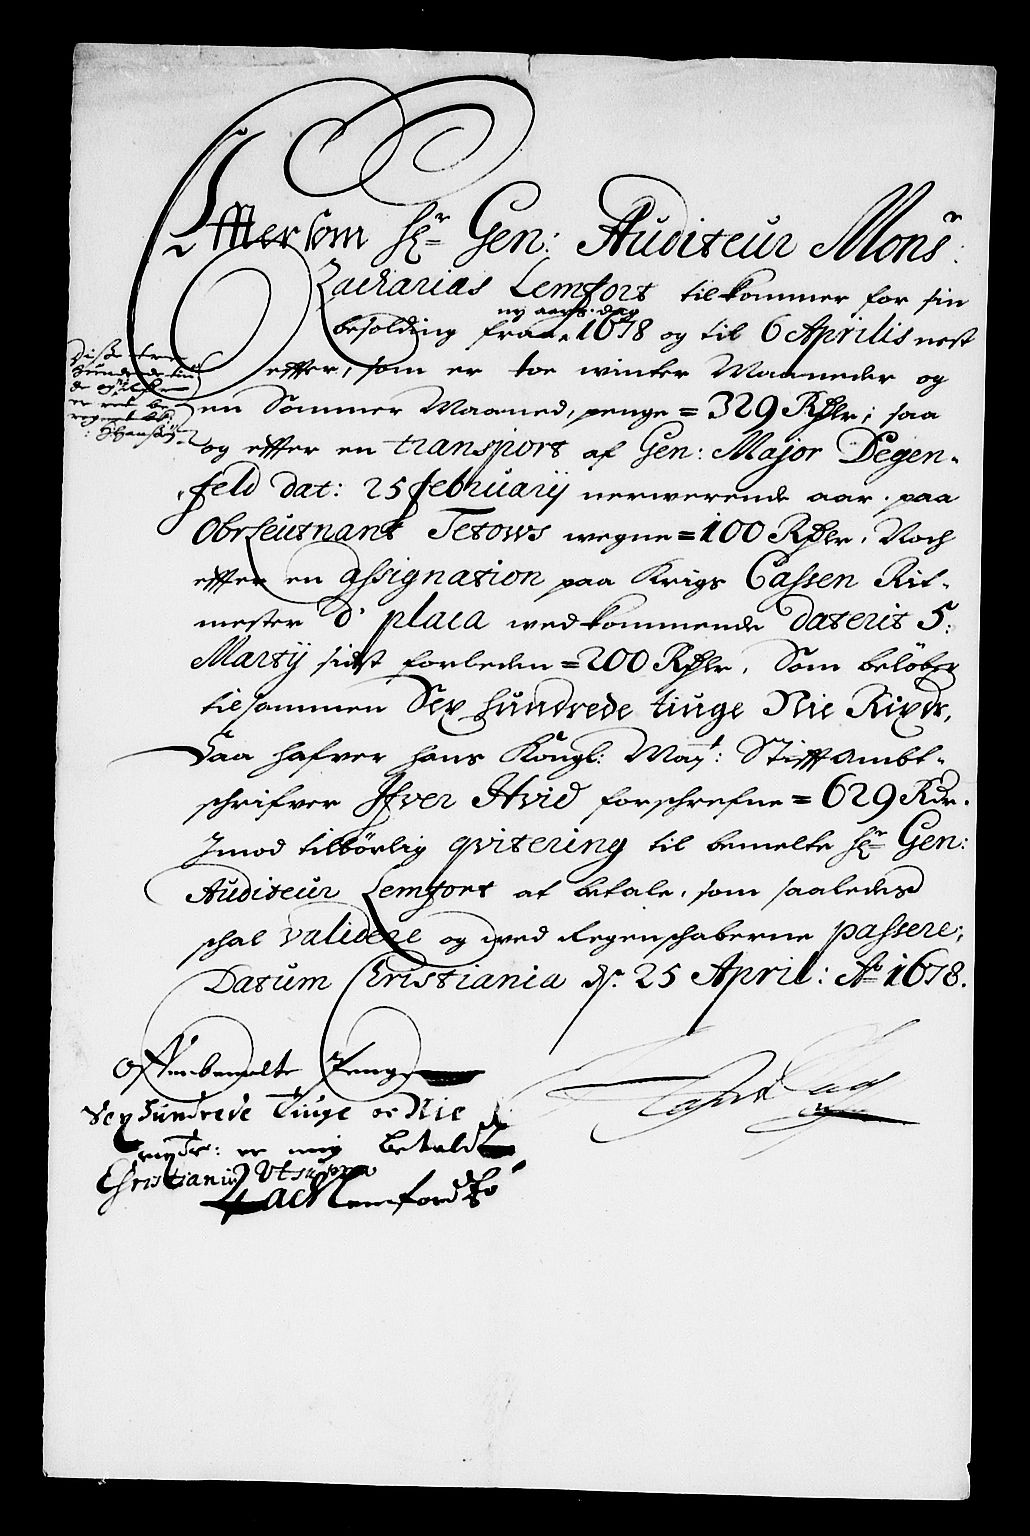 Effter som Hr Gen: Auditeur Monsr:
Zacharias Lemfort tilkommer for sin
besolding fra ny aars dag 1678 og til 6 Aprilis nest
effter, som er toe winter Maaneder og
en Sommer Maaned, penge = 329 Rdlr; saa
og effter en transport af Gen: Major Degen-
feld dat: 25 february nerwerende aar, paa
Obrleutnant Tetows wegne = 100 Rdlr, Noch
effter en assignation paa Krigs Cassen Rit-
mester d' placa wedkommende daterit 5:
Martij sidst forleden = 200 Rdlr, Som beløber
tilsammen Sex hundrede tiuge Nie Rixdr,
Saa hafver hans Kongl: Mayt: Stifft Ambt-
schrifver Ifver Hvid forschrefne = 629 Rdr.
Imod tilbörlig qvitering til bemelte Hr Gen:
Auditeur Lemfort at betale, som saaledes
schal validere og wed Regenschaberne passere;
Datum Christiania ds. 25 April: Ao 1678.
Disse tre
hundrede tiu
de og
er ret be
Offvenbemelte Penge
Sex hundrede Tiuge oc Nie
rixdr: er mig betald
Christiania Ut supra
Zach Lemfordt